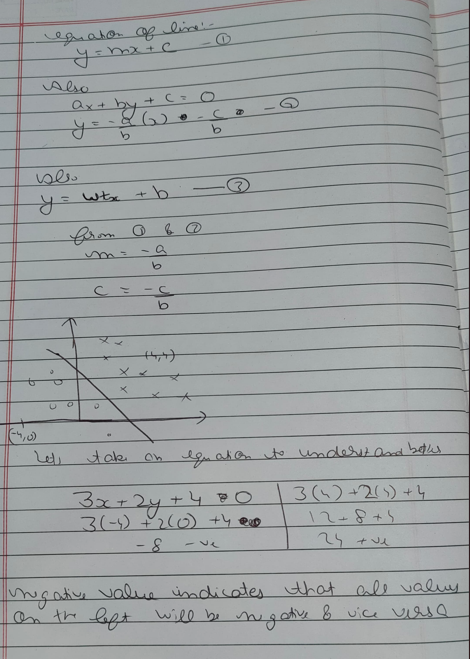 equation of line:-
y = mx + c — ①
Also
ax + by + c = 0
y = -a/b (x) - c/b — ②
also
y = wtx + b — ③
from ① & ②
m = -a/b
c = -c/b
(4,4)
(-4,0)
Let, take an equation to understand better
3x + 2y + 4 = 0 | 3(4) + 2(4) + 4
3(-4) + 2(0) + 4 | 12 + 8 + 4
-8 -ve | 24 +ve
negative value indicates that all values
on the left will be negative & vice versa